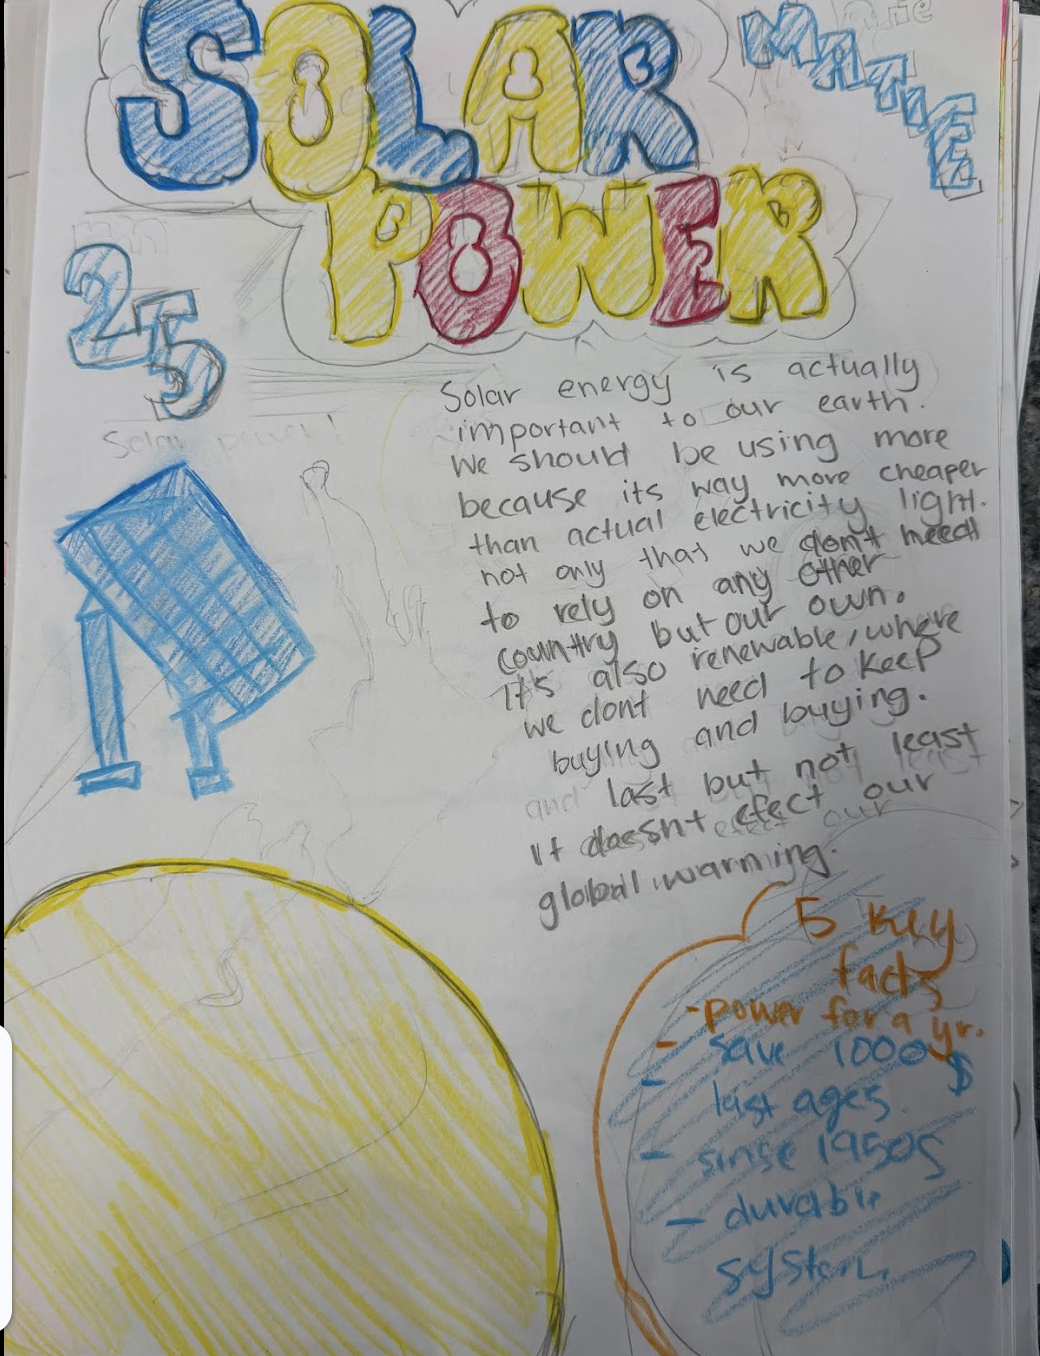 SOLAR
POWER
MATIE
25
Solar power!
Solar energy is actually
important to our earth.
We should be using more
because its way more cheaper
than actual electricity light.
not only that we don't need
to rely on any other
country but our own.
It's also renewable, where
we dont need to keep
buying and buying.
and last but not least
it doesnt efect our
global warming.
5 key
facts
-power for a yr.
- save 1000$
- last ages.
- sinse 1950s
- durable
system